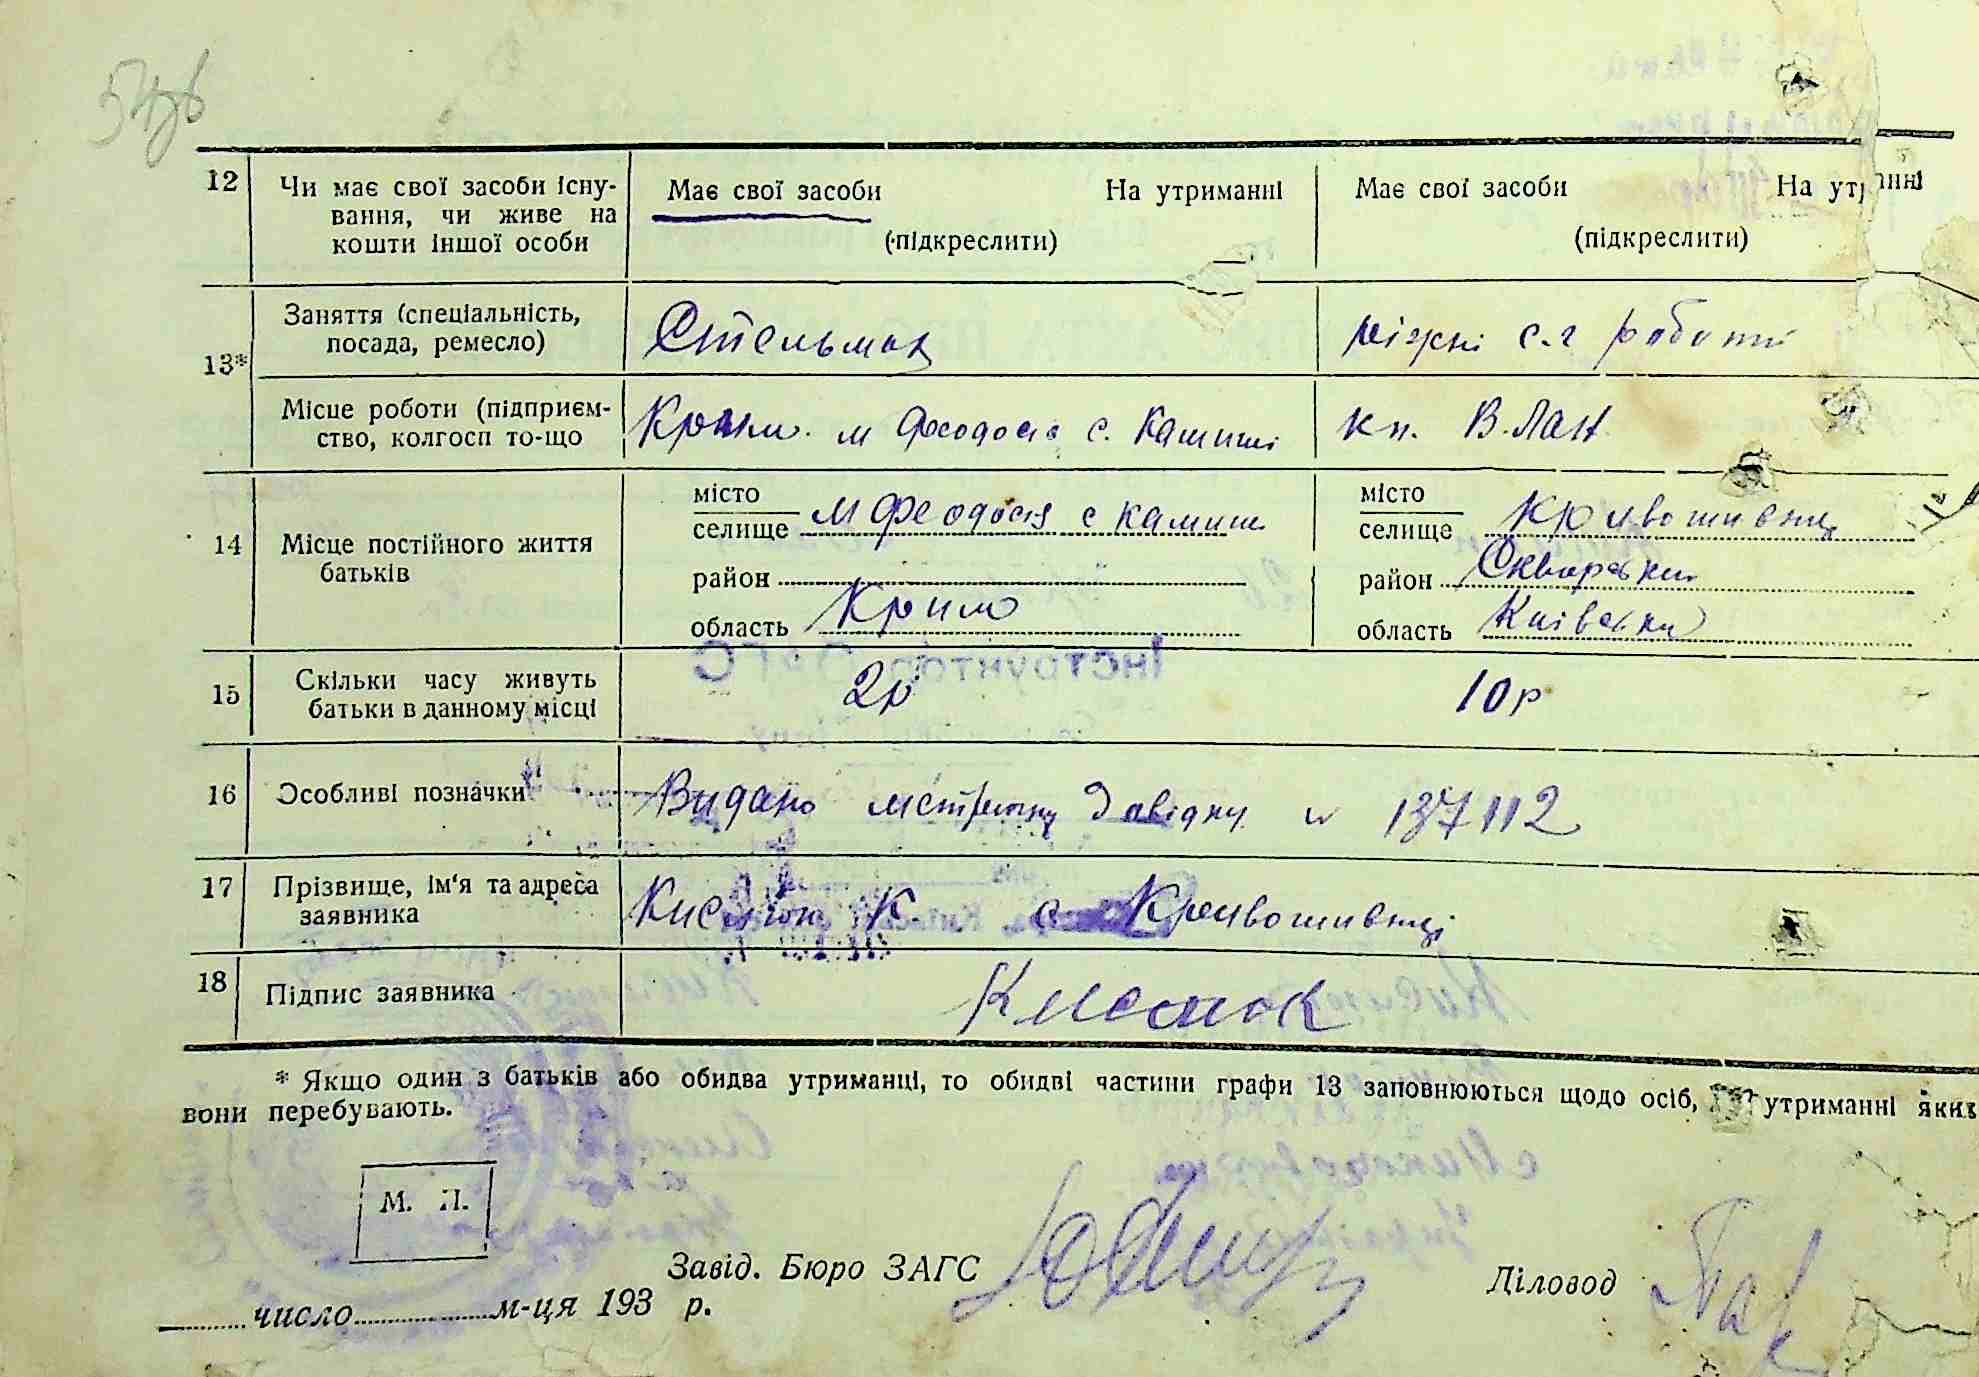 12 Чи має свої засоби існу-
вання, чи живе на
кошти іншої особи
Має свої засоби На утриманні
(підкреслити)
Має свої засоби На утриманні
(підкреслити)
13*
Заняття (спеціальність,
посада, ремесло)
Стельмах
ріжні с.г роботи
Місце роботи (підприєм-
ство, колгосп то-що
Крим. м Феодосія с. Камиші
кп. В. Лан
14 Місце постійного життя
батьків
місто
селище м Феодосія с Камиш
район
область Крим
місто
селище Кривошиєнці
район Сквирськи
область Київськи
15 Скільки часу живуть
батьки в данному місці
2р
10р
16 Особливі позначки
Видано метричну Довідку № 137112
17 Прізвище, ім'я та адреса
заявника
К с Кривошиєнці
18 Підпис заявника
* Якщо один з батьків або обидва утриманці, то обидві частини графи 13 заповнюються щодо осіб, утриманні яких
вони перебувають.
М. П.
Завід. Бюро ЗАГС
Діловод
число м-ця 193 р.
Інструктор ЗАГС